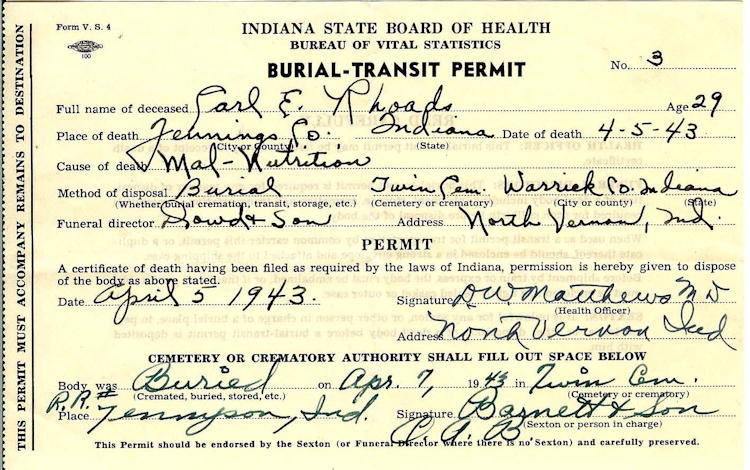 Form V. S. 4
100
INDIANA STATE BOARD OF HEALTH
BUREAU OF VITAL STATISTICS
BURIAL-TRANSIT PERMIT
No. 3
Full name of deceased Earl E. Rhoads Age 29
Place of death Jennings Co. Indiana Date of death 4-5-43
(City or County) (State)
Cause of death Mal-Nutrition
Method of disposal Burial Twin Cem. Warrick Co. Indiana
(Whether burial cremation, transit, storage, etc.) (Cemetery or crematory) (City or county) (State)
Funeral director Dowd & Son Address North Vernon, Ind.
PERMIT
A certificate of death having been filed as required by the laws of Indiana, permission is hereby given to dispose
of the body as above stated.
Date April 5 1943. Signature D W Matthews M D
(Health Officer)
Address North Vernon Ind
CEMETERY OR CREMATORY AUTHORITY SHALL FILL OUT SPACE BELOW
Body was Buried on Apr. 7, 1943 in Twin Cem.
(Cremated, buried, stored, etc.) (Cemetery or crematory)
R.R.#
Place Tennyson, Ind. Signature Barnett & Son
(Sexton or person in charge)
C. A. B
This Permit should be endorsed by the Sexton (or Funeral Director where there is no Sexton) and carefully preserved.
THIS PERMIT MUST ACCOMPANY REMAINS TO DESTINATION